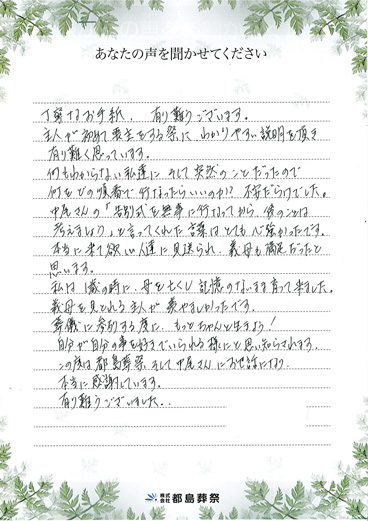 あなたの声を聞かせてください
丁寧なお手紙、有り難うございます。
主人が初めて喪主をする際に、わかりやすい説明を頂き
有り難く思っています。
何もわからない私達に、そして突然のことだったので
何をどの順番で行なったらいいのか!? 不安だらけでした。
中尾さんの「告別式を無事に行なってから、後のことは
考えましょう」と言ってくれた言葉はとても心強かったです。
本当に来て欲しい人達に見送られ、義母も満足だったと
思います。
私は1歳の時に、母を亡くし記憶のないまま育って来ました。
義母を見とれる主人が羨やましかったです。
葬儀に参列する度に、もっとちゃんと生きよう!
自分が自分の事を好きでいられる様にと思い知らされます。
この度は都島葬祭そして中尾さんにお世話になり、
本当に感謝しています。
有り難うございました。
株式会社 都島葬祭